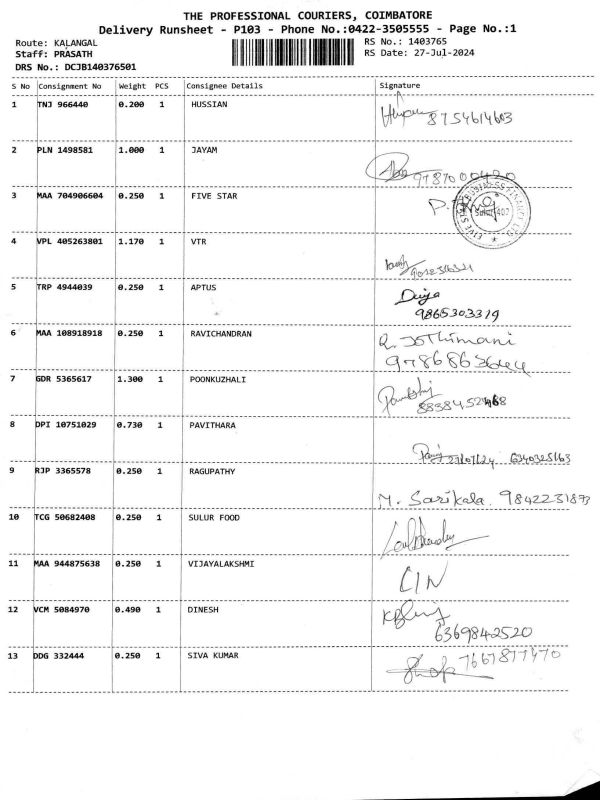 THE PROFESSIONAL COURIERS, COIMBATORE
Delivery Runsheet - P103 - Phone No.:0422-3505555 - Page No.:1
Route: KALANGAL
Staff: PRASATH
DRS No.: DCJB140376501
RS No.: 1403765
RS Date: 27-Jul-2024
S No Consignment No Weight PCS Consignee Details Signature
1 TNJ 966440 0.200 1 HUSSIAN 8754614603
2 PLN 1498581 1.000 1 JAYAM
3 MAA 704906604 0.250 1 FIVE STAR
4 VPL 405263801 1.170 1 VTR
5 TRP 4944039 0.250 1 APTUS Divya
9865303319
6 MAA 108918918 0.250 1 RAVICHANDRAN R. Jothimani
9786863644
7 GDR 5365617 1.300 1 POONKUZHALI
8 DPI 10751029 0.730 1 PAVITHARA 27/07/24
9 RJP 3365578 0.250 1 RAGUPATHY M. Sarikala. 9842231873
10 TCG 50682408 0.250 1 SULUR FOOD
11 MAA 944875638 0.250 1 VIJAYALAKSHMI
12 VCM 5084970 0.490 1 DINESH
6369842520
13 DDG 332444 0.250 1 SIVA KUMAR 7667877470